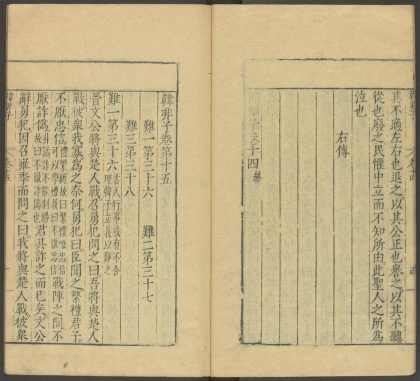 其不適左右也退之以其公正也譽之以其不聽
從也廢之民懼中立而不知所由此聖人之所為
泣也
右傳
十四終
韓非子卷第十五
難一第三十六 難二第三十七
難三第三十八
難一第三十六 古人行事或有不合理韓子立義以難之
晉文公將與楚人戰召舅犯問之曰吾將與楚人
戰彼眾我寡為之奈何舅犯曰臣聞之繁禮君子
不厭忠信
戰陣之間不
厭詐偽 君其詐之而已矣文公
辭舅犯因召雍季而問之曰我將與楚人戰彼眾